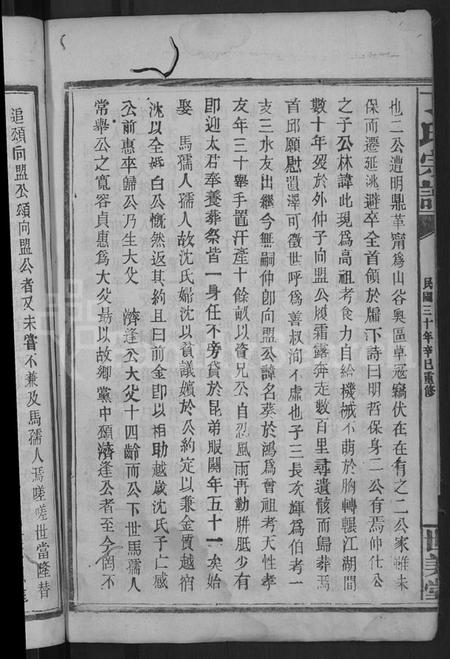 丁氏宗譜
民國三十年辛巳重修
世美堂
也二公遭明鼎革甯爲山谷奧區草冠竊伏在在有之二公家雖未
保而遷延洮避卒全首領於牖下詩曰明哲保身二公有焉仲仕公
之子公林諱此現爲高祖考食力自給機械不萌於胸轉輾江湖間
數十年歿於外仲子向盟公履霜露奔走數百里尋遺骸而歸葬焉
首邱願慰遺澤可徵世呼爲善叔洵不虛也子三長永輝爲伯考一
亥三水友出繼今無嗣仲卽向盟公諱名葵於鴻爲曾祖考天性孝
友年三十舉手置汗產十餘畝以資兄公自忍風雨再動胼胝少有
卽迎太君奉養葬祭皆一身任不旁貸於昆弟服闋年五十一矣始
娶 馬孺人孺人故沈氏婦沈以貧議嬪於公約定以兼金質越宿
沈以全婚白公慨然返其約且曰前金卽以相助越歲沈氏子仁感
公前惠卒歸公乃生大父 濟逢公大父十四齡而公下世馬孺人
常舉公之寬容貞惠爲大父勗以故鄉黨中頌濟逢公者至今猶不
追頌向盟公頌向盟公者又未嘗不兼及馬孺人焉嗟嗟世當隆替